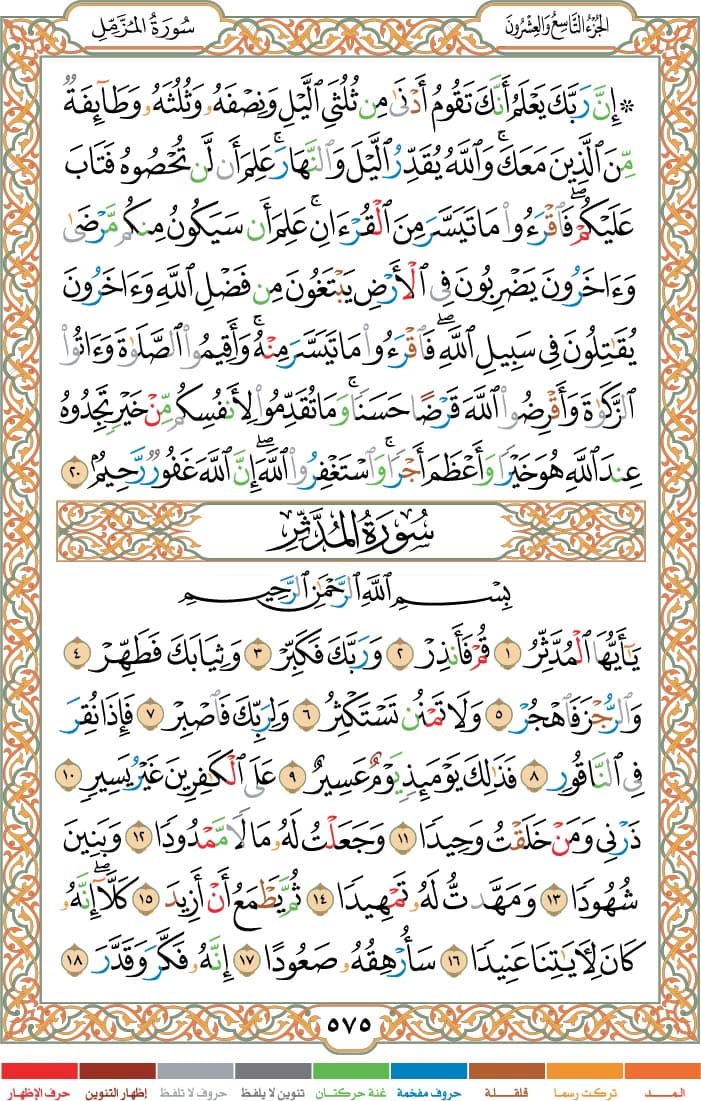 الجُزْءُ التَّاسِعُ وَالعِشْرُونَ
سُورَةُ المُزَّمِّلِ
۞ إِنَّ رَبَّكَ يَعْلَمُ أَنَّكَ تَقُومُ أَدْنَىٰ مِن ثُلُثَيِ ٱلَّيْلِ وَنِصْفَهُۥ وَثُلُثَهُۥ وَطَآئِفَةٌ
مِّنَ ٱلَّذِينَ مَعَكَ ۚ وَٱللَّهُ يُقَدِّرُ ٱلَّيْلَ وَٱلنَّهَارَ ۚ عَلِمَ أَن لَّن تُحْصُوهُ فَتَابَ
عَلَيْكُمْ ۖ فَٱقْرَءُوا۟ مَا تَيَسَّرَ مِنَ ٱلْقُرْءَانِ ۚ عَلِمَ أَن سَيَكُونُ مِنكُم مَّرْضَىٰ
وَءَاخَرُونَ يَضْرِبُونَ فِى ٱلْأَرْضِ يَبْتَغُونَ مِن فَضْلِ ٱللَّهِ وَءَاخَرُونَ
يُقَٰتِلُونَ فِى سَبِيلِ ٱللَّهِ ۖ فَٱقْرَءُوا۟ مَا تَيَسَّرَ مِنْهُ ۚ وَأَقِيمُوا۟ ٱلصَّلَوٰةَ وَءَاتُوا۟
ٱلزَّكَوٰةَ وَأَقْرِضُوا۟ ٱللَّهَ قَرْضًا حَسَنًا ۚ وَمَا تُقَدِّمُوا۟ لِأَنفُسِكُم مِّنْ خَيْرٍ تَجِدُوهُ
عِندَ ٱللَّهِ هُوَ خَيْرًا وَأَعْظَمَ أَجْرًا ۚ وَٱسْتَغْفِرُوا۟ ٱللَّهَ ۖ إِنَّ ٱللَّهَ غَفُورٌ رَّحِيمٌۢ ٢٠
سُورَةُ المُدَّثِّرِ
بِسْمِ ٱللَّهِ ٱلرَّحْمَٰنِ ٱلرَّحِيمِ
يَٰٓأَيُّهَا ٱلْمُدَّثِّرُ ١ قُمْ فَأَنذِرْ ٢ وَرَبَّكَ فَكَبِّرْ ٣ وَثِيَابَكَ فَطَهِّرْ ٤
وَٱلرُّجْزَ فَٱهْجُرْ ٥ وَلَا تَمْنُن تَسْتَكْثِرُ ٦ وَلِرَبِّكَ فَٱصْبِرْ ٧ فَإِذَا نُقِرَ
فِى ٱلنَّاقُورِ ٨ فَذَٰلِكَ يَوْمَئِذٍ يَوْمٌ عَسِيرٌ ٩ عَلَى ٱلْكَٰفِرِينَ غَيْرُ يَسِيرٍ ١٠
ذَرْنِى وَمَنْ خَلَقْتُ وَحِيدًا ١١ وَجَعَلْتُ لَهُۥ مَالًا مَّمْدُودًا ١٢ وَبَنِينَ
شُهُودًا ١٣ وَمَهَّدتُّ لَهُۥ تَمْهِيدًا ١٤ ثُمَّ يَطْمَعُ أَنْ أَزِيدَ ١٥ كَلَّآ ۖ إِنَّهُۥ
كَانَ لِـَٔايَٰتِنَا عَنِيدًا ١٦ سَأُرْهِقُهُۥ صَعُودًا ١٧ إِنَّهُۥ فَكَّرَ وَقَدَّرَ ١٨
٥٧٥
المــــد تركت رسما قلقـــلة حروف مفخمة غنة حركتـان تنوين لا يلفظ حروف لا تلفظ إظهار التنوين حرف الإظهار